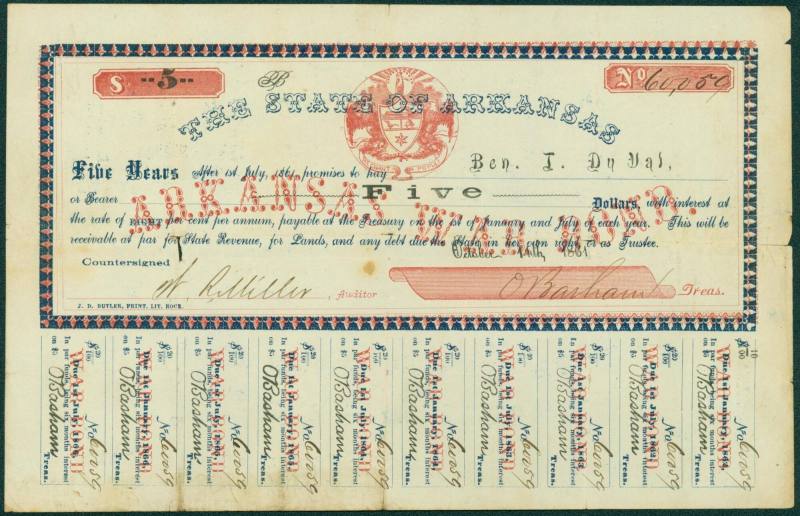 $ --5--
No 60,059
THE STATE OF ARKANSAS
Five Years After 1st July, 1861 promises to pay Ben. T. DuVal,
or Bearer Five Dollars, with interest at
the rate of EIGHT per cent per annum, payable at the Treasury on the 1st of January and July of each year. This will be
receivable at par for State Revenue, for Lands, and any debt due the State in her own right or as Trustee.
ARKANSAS WAR BOND.
October 14th, 1861
Countersigned
W. R. Miller, Auditor
O Basham Treas.
J. D. BUTLER, PRINT. LIT. ROCK.
$ 20/100 No 60059
Due 1st July, 1866.
In par funds, being six months interest
on $5 O Basham Treas.
WAR BOND
$ 20/100 No 60059
Due 1st January, 1866.
In par funds, being six months interest
on $5 O Basham Treas.
WAR BOND
$ 20/100 No 60059
Due 1st July, 1865.
In par funds, being six months interest
on $5 O Basham Treas.
WAR BOND
$ 20/100 No 60059
Due 1st January, 1865.
In par funds, being six months interest
on $5 O Basham Treas.
WAR BOND
$ 20/100 No 60059
Due 1st July, 1864.
In par funds, being six months interest
on $5 O Basham Treas.
WAR BOND
$ 20/100 No 60059
Due 1st January, 1864.
In par funds, being six months interest
on $5 O Basham Treas.
WAR BOND
$ 20/100 No 60059
Due 1st July, 1863.
In par funds, being six months interest
on $5 O Basham Treas.
WAR BOND
$ 20/100 No 60059
Due 1st January, 1863.
In par funds, being six months interest
on $5 O Basham Treas.
WAR BOND
$ 20/100 No 60059
In par funds, being six months interest
on $5 O Basham Treas.
WAR BOND
$ No 60059
In par funds, being six months interest
on $5 O Basham Treas.
WAR BOND